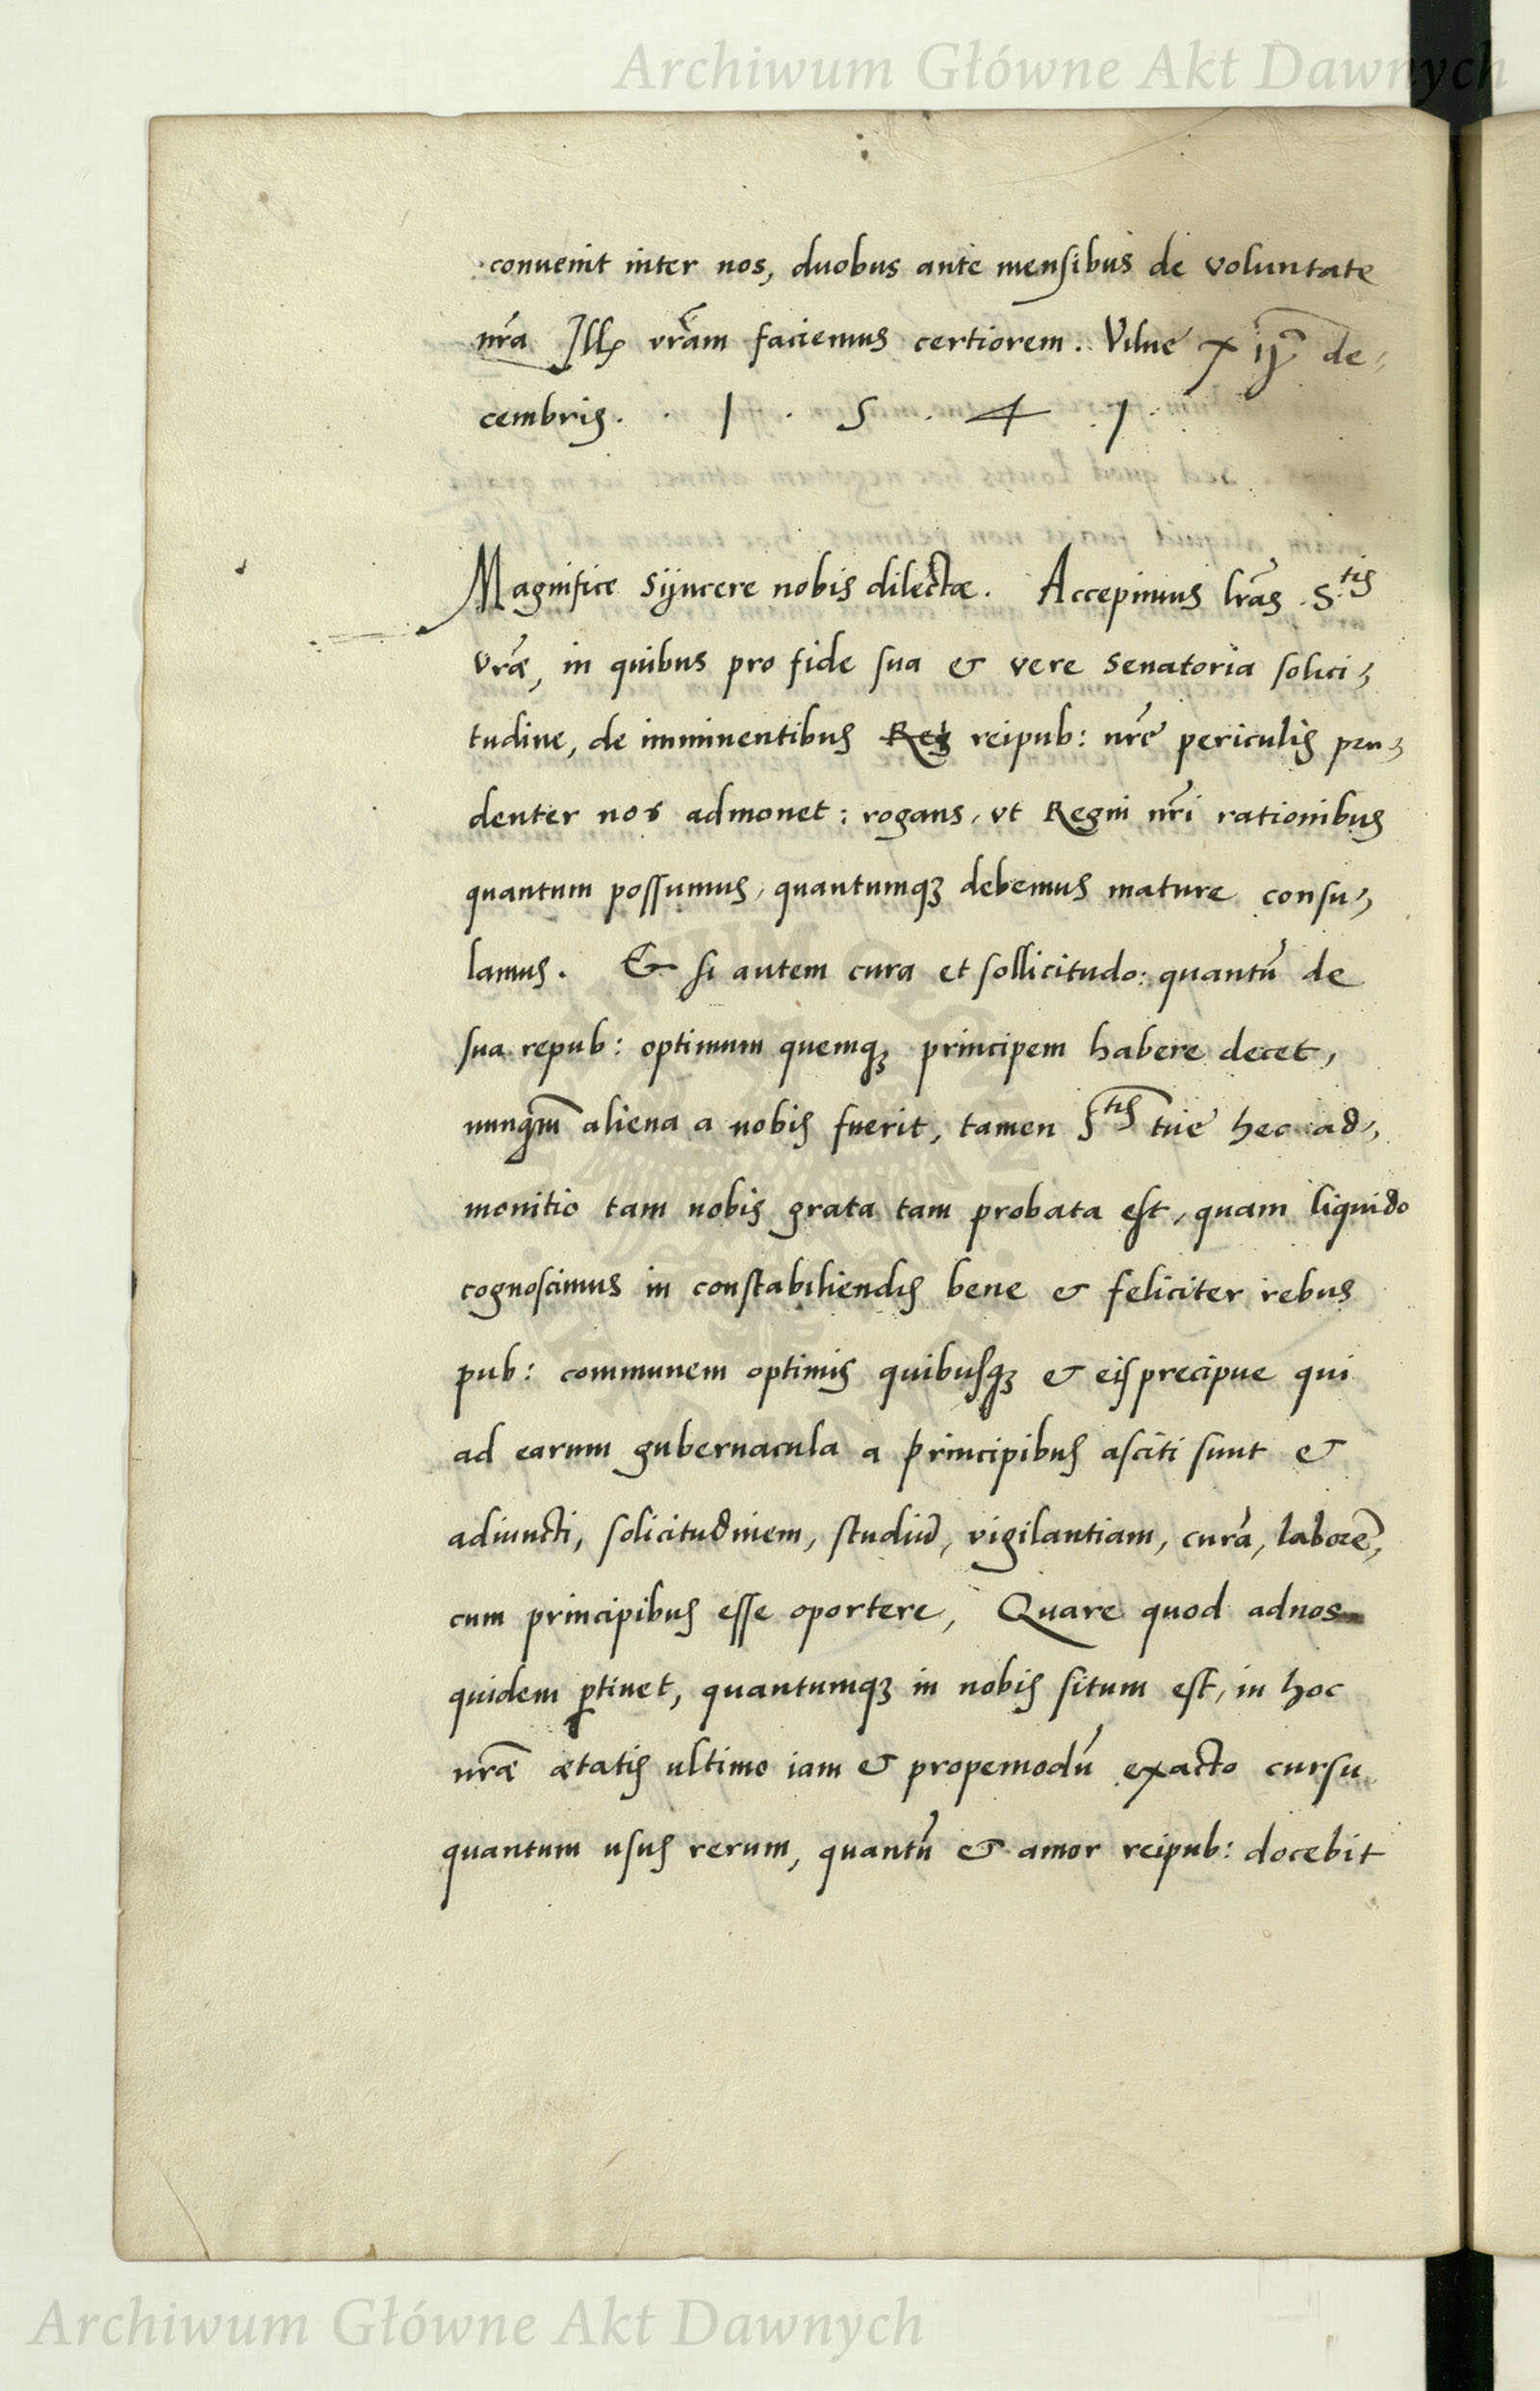 Archiwum Główne Akt Dawnych
conuenit inter nos, duobus ante mensibus de voluntate
nr̃a Ill vr̃am faciemus certiorem. Vilne XII de,
cembris. . 1 . 5 . 4 1.
Magnifice syncere nobis dilectæ. Accepimus lr̃as S.tis
Vr̃æ, in quibus pro fide sua & vere senatoria solici,
tudine, de imminentibus Reg reipub: nr̃e periculis pru,
denter nos admonet: rogans, vt Regni nr̃i rationibus
quantum possumus, quantumqȝ debemus mature consu,
lamus. Et si autem cura et sollicitudo: quantũ de
sua repub: optimum quemqȝ principem habere decet,
nunq̃m aliena a nobis fuerit, tamen Stis tue hec ad,
monitio tam nobis grata tam probata est, quam liquido
cognoscimus in constabiliendis bene & feliciter rebus
pub: communem optimis quibusqȝ & eis precipue qui
ad earum gubernacula a principibus asciti sunt &
adiuncti, solicitudinem, studiũ, vigilantiam, curã, laborẽ,
cum principibus esse oportere, Quare quod adnos
quidem ꝑtinet, quantumqȝ in nobis situm est, in hoc
nr̃æ ætatis ultimo iam & propemodũ exacto cursu
quantum usus rerum, quantũ & amor reipub: docebit
Archiwum Główne Akt Dawnych